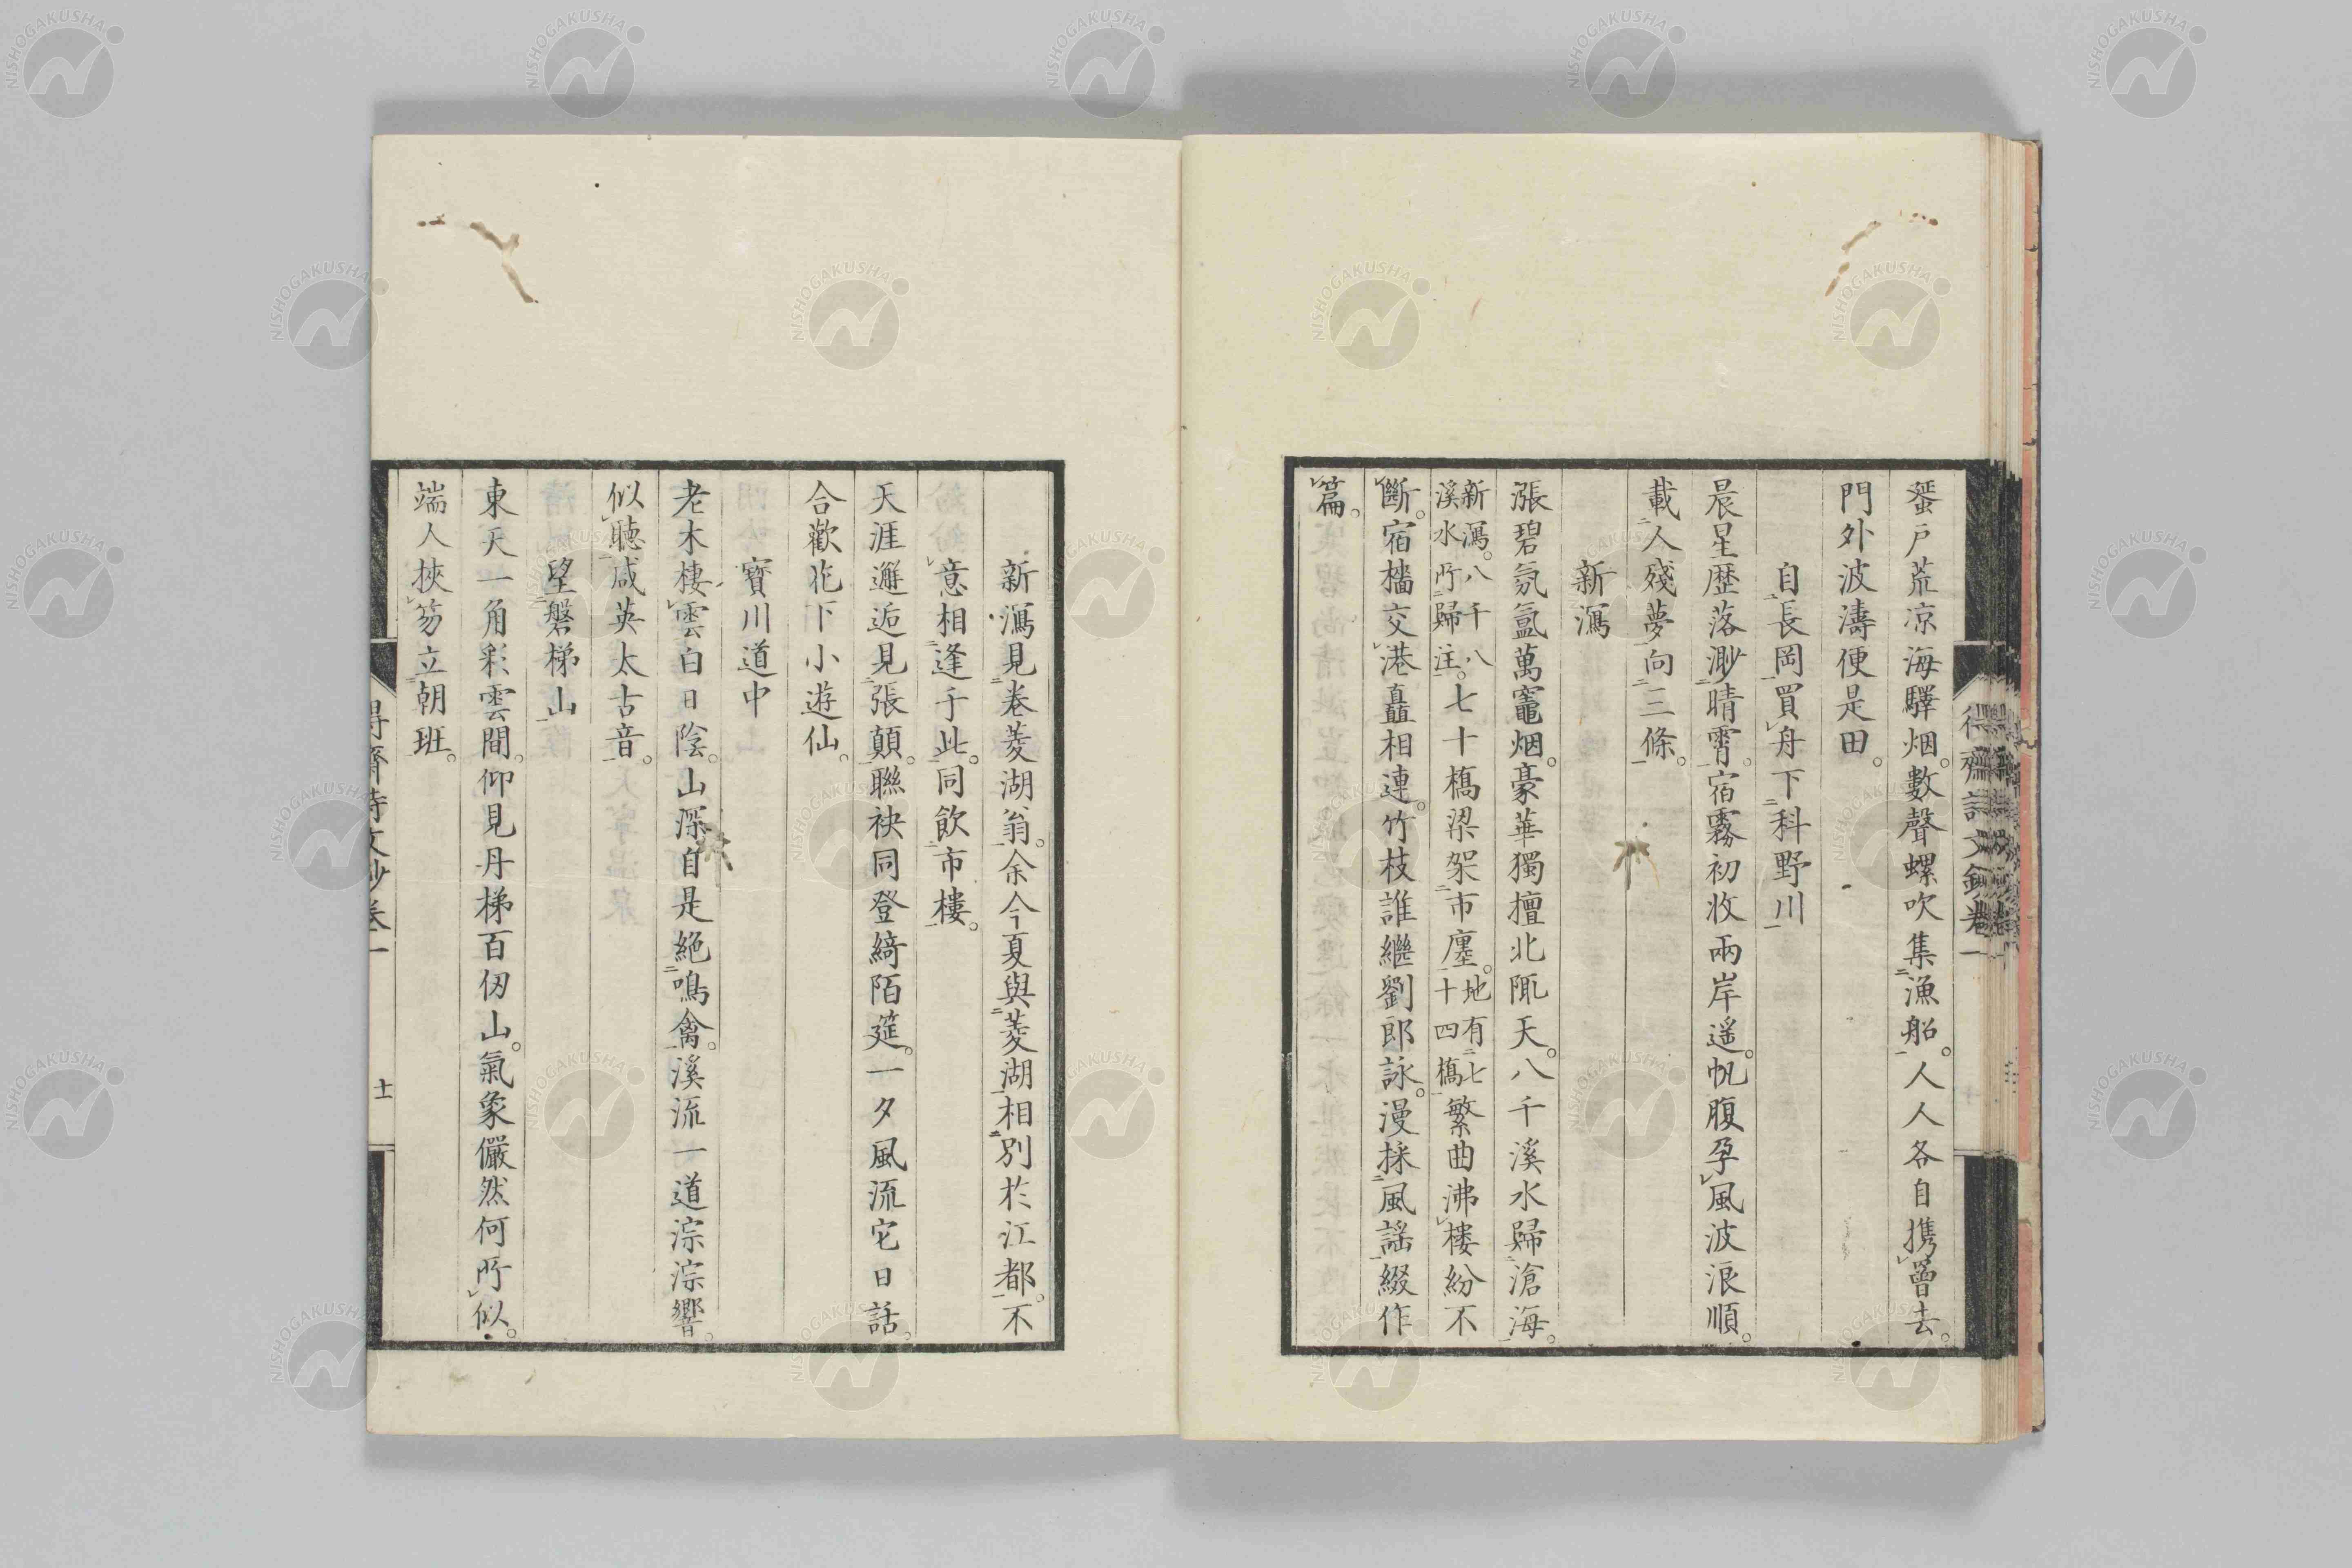 蜑戶荒凉海驛烟。數聲螺吹集漁船。人人各自攜罾去。
門外波濤便是田。
自長岡買舟下科野川
晨星歷落渺晴霄。宿霧初收兩岸遙。帆腹孕風波浪順。
載人殘夢向三條。
新瀉
漲碧氛氳萬竈烟。豪華獨擅北陬天。八千溪水歸滄海。
新瀉。八千八溪水所歸注。七十橋梁架市廛。地有七十四橋繁曲沸樓紛不
斷。宿檣交港矗相連。竹枝誰繼劉郎詠。漫採風謠綴作
篇。
得齋詩文鈔卷一
新瀉見卷菱湖翁。余今夏與菱湖相別於江都。不
意相逢于此。同飲市樓。
天涯邂逅見張顛。聯袂同登綺陌筵。一夕風流它日話。
合歡花下小遊仙。
寶川道中
老木棲雲白日陰。山深自是絕鳴禽。溪流一道淙淙響。
似聽咸英太古音。
望磐梯山
東天一角彩雲間。仰見丹梯百仞山。氣象儼然何所似。
端人挾笏立朝班。
得齋詩文鈔卷一
十一
NISHOGAKUSHA